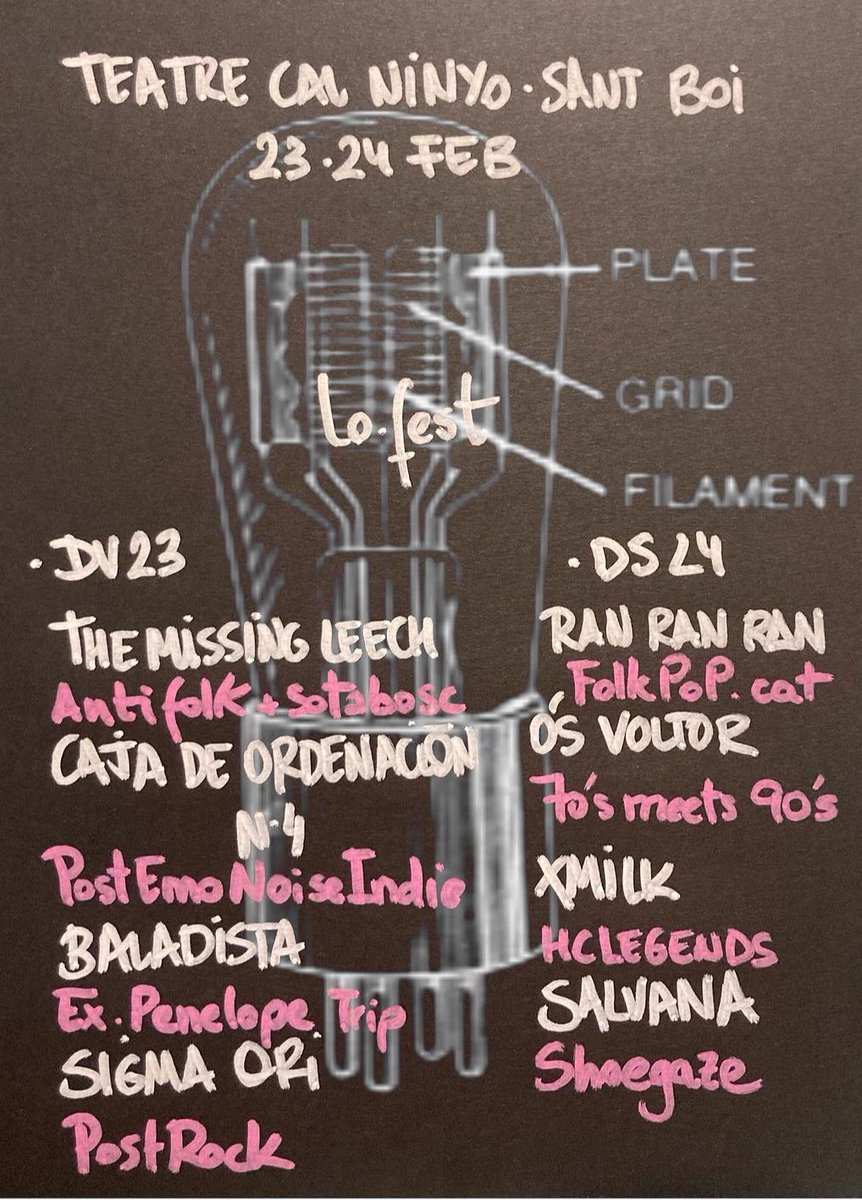 TEATRE CAL NINYO · SANT BOI
23·24 FEB
PLATE
GRID
lo.fest
FILAMENT
· DV23
THE MISSING LEECH
Antifolk + sotabosc
CAJA DE ORDENACIÓN
N·4
PostEmoNoiseIndie
BALADISTA
Ex. Penelope Trip
SIGMA ORI
PostRock
· DS24
RAN RAN RAN
FolkPoP.cat
ÓS VOLTOR
70's meets 90's
XMILK
HCLEGENDS
SALVANA
Shoegaze